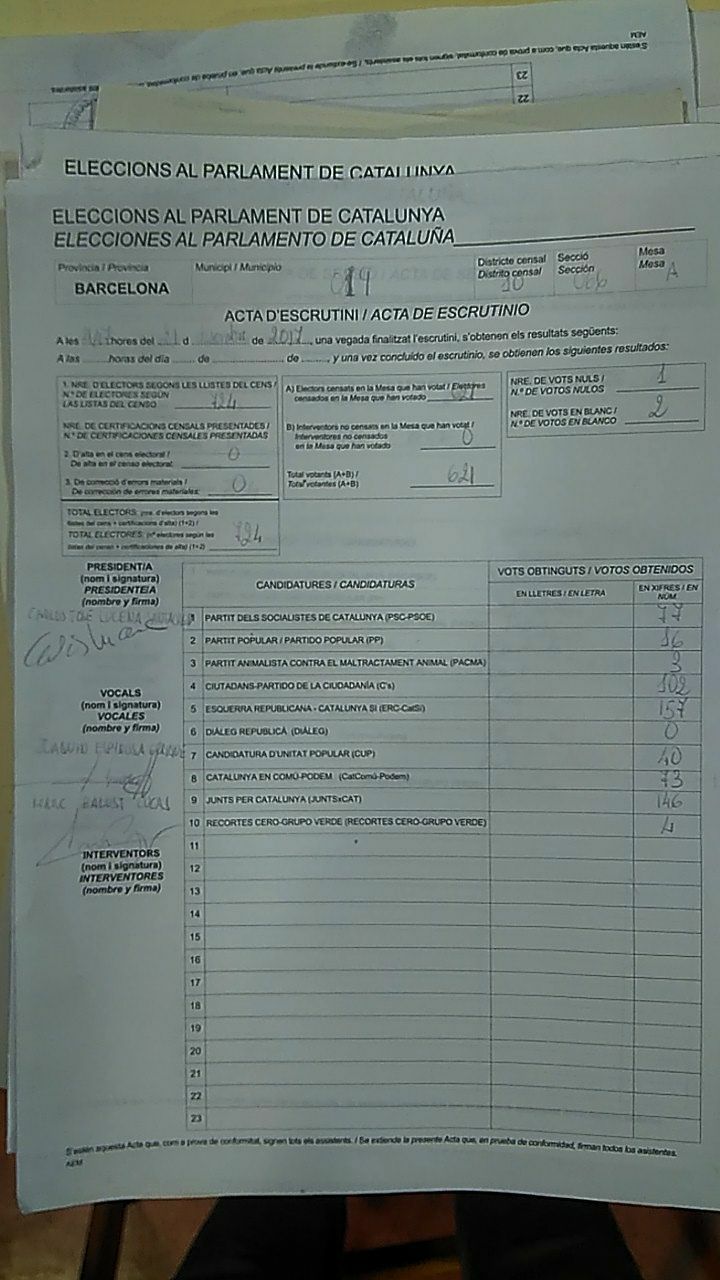 AEM
S'estén aquesta Acta que, com a prova de conformitat, signen tots els assistents. / Se extiende la presente Acta que, en prueba de conformidad,
23
22
ELECCIONS AL PARLAMENT DE CATALUNYA
ELECCIONS AL PARLAMENT DE CATALUNYA
ELECCIONES AL PARLAMENTO DE CATALUÑA
Província / Provincia
BARCELONA
Municipi / Municipio
019
Districte censal
Distrito censal
10
Secció
Sección
006
Mesa
Mesa
A
ACTA D'ESCRUTINI / ACTA DE ESCRUTINIO
A les hores del 21 d de 2017, una vegada finalitzat l'escrutini, s'obtenen els resultats següents:
A las horas del día de de , y una vez concluido el escrutinio, se obtienen los siguientes resultados:
1. NRE. D'ELECTORS SEGONS LES LLISTES DEL CENS /
N.º DE ELECTORES SEGÚN
LAS LISTAS DEL CENSO 724
NRE. DE CERTIFICACIONS CENSALS PRESENTADES /
N.º DE CERTIFICACIONES CENSALES PRESENTADAS
2. D'alta en el cens electoral /
De alta en el censo electoral: 0
3. De correcció d'errors materials /
De corrección de errores materiales: 0
TOTAL ELECTORS: (nre. d'electors segons les
llistes del cens + certificacions d'alta) (1+2) /
TOTAL ELECTORES: (nº electores según las
listas del censo + certificaciones de alta) (1+2) 724
A) Electors censats en la Mesa que han votat / Electores
censados en la Mesa que han votado 621
B) Interventors no censats en la Mesa que han votat /
Interventores no censados
en la Mesa que han votado 0
Total votants (A+B) /
Total votantes (A+B) 621
NRE. DE VOTS NULS /
N.º DE VOTOS NULOS 1
NRE. DE VOTS EN BLANC /
N.º DE VOTOS EN BLANCO 2
PRESIDENT/A
(nom i signatura)
PRESIDENTE/A
(nombre y firma)
CARLOS JOSE LUCENA
VOCALS
(nom i signatura)
VOCALES
(nombre y firma)
MARC
INTERVENTORS
(nom i signatura)
INTERVENTORES
(nombre y firma)
CANDIDATURES / CANDIDATURAS
VOTS OBTINGUTS / VOTOS OBTENIDOS
EN LLETRES / EN LETRA
EN XIFRES / EN NÚM.
1 PARTIT DELS SOCIALISTES DE CATALUNYA (PSC-PSOE) 77
2 PARTIT POPULAR / PARTIDO POPULAR (PP) 16
3 PARTIT ANIMALISTA CONTRA EL MALTRACTAMENT ANIMAL (PACMA) 3
4 CIUTADANS-PARTIDO DE LA CIUDADANÍA (C's) 102
5 ESQUERRA REPUBLICANA - CATALUNYA SÍ (ERC-CatSí) 157
6 DIÀLEG REPUBLICÀ (DIÀLEG) 0
7 CANDIDATURA D'UNITAT POPULAR (CUP) 40
8 CATALUNYA EN COMÚ-PODEM (CatComú-Podem) 73
9 JUNTS PER CATALUNYA (JUNTSxCAT) 146
10 RECORTES CERO-GRUPO VERDE (RECORTES CERO-GRUPO VERDE) 4
11
12
13
14
15
16
17
18
19
20
21
22
23
S'estén aquesta Acta que, com a prova de conformitat, signen tots els assistents. / Se extiende la presente Acta que, en prueba de conformidad, firman todos los asistentes.
AEM